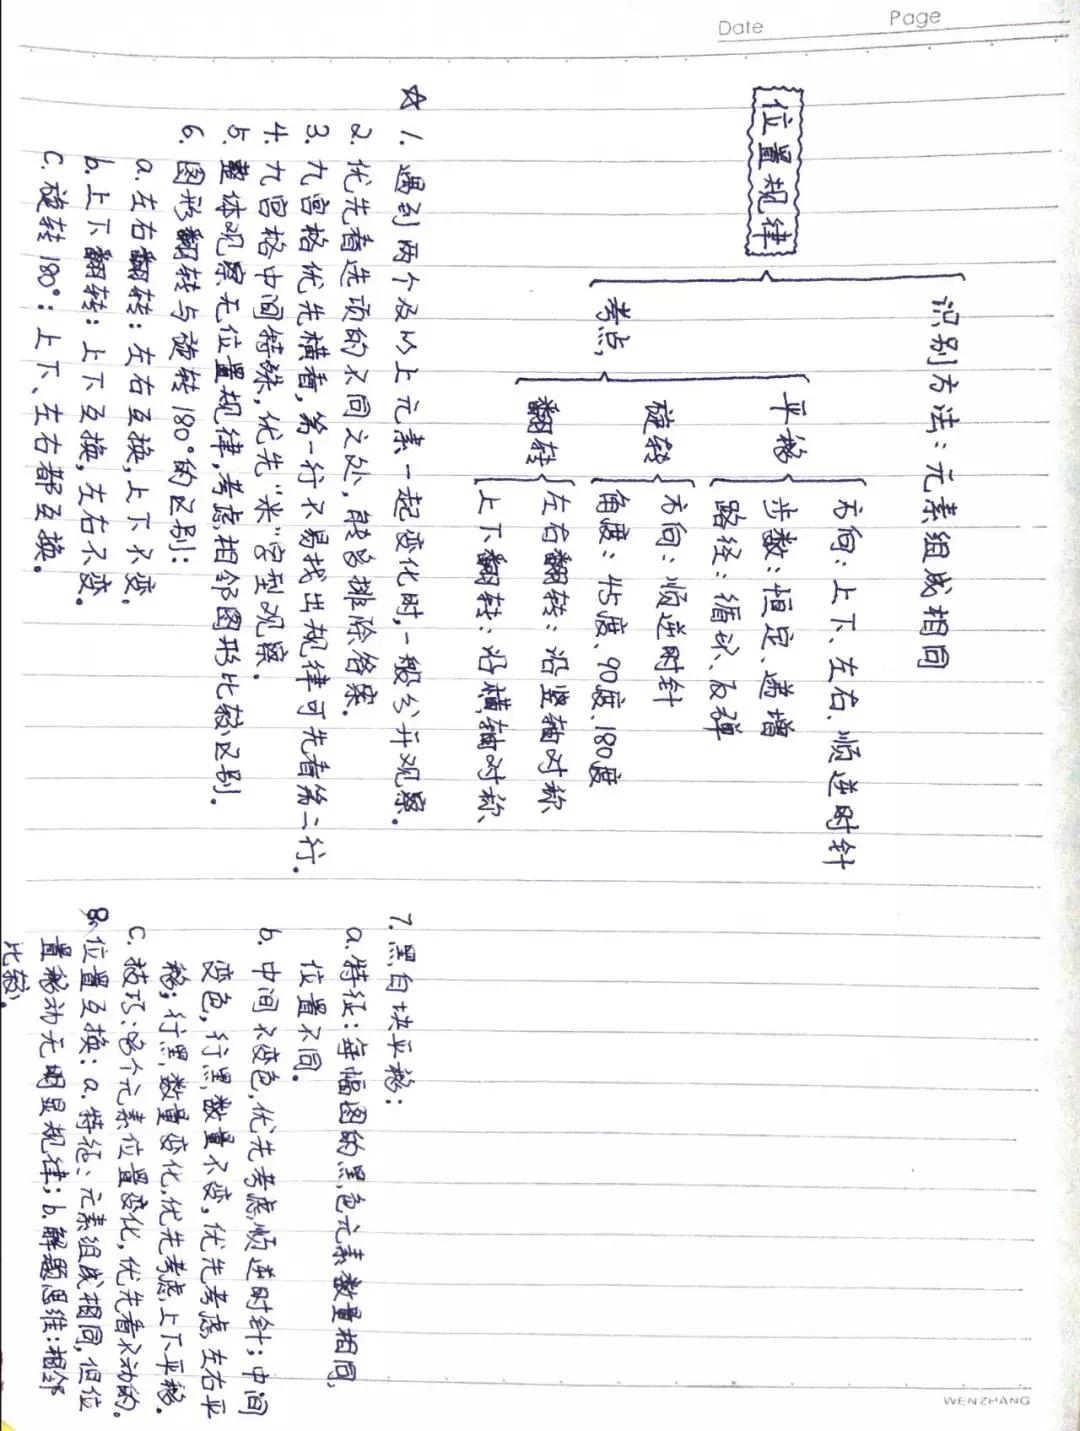 Date
Page
位置规律
识别方法：元素组成相同
考点
平移
方向：上下、左右、顺逆时针
步数：恒定、递增
路径：循环、反弹
旋转
方向：顺逆时针
角度：45度、90度、180度
翻转
左右翻转：沿竖轴对称
上下翻转：沿横轴对称
☆ 1. 遇到两个及以上元素一起变化时，一般分开观察。
2. 优先看选项的不同之处，能多排除答案。
3. 九宫格优先横看，第一行不易找出规律可先看第二行。
4. 九宫格中间特殊，优先“米”字型观察。
5. 整体观察无位置规律，考虑相邻图形比较区别。
6. 图形翻转与旋转180°的区别：
a. 左右翻转：左右互换，上下不变。
b. 上下翻转：上下互换，左右不变。
c. 旋转180°：上下、左右都互换。
7. 黑白块平移：
a. 特征：每幅图的黑色元素数量相同，
位置不同。
b. 中间不变色，优先考虑顺逆时针；中间
变色，行黑数量不变，优先考虑左右平
移；行黑数量变化，优先考虑上下平移。
c. 技巧：多个元素位置变化，优先看不动的。
8. 位置互换：a. 特征：元素组成相同，但位
置移动无明显规律；b. 解题思维：相邻
比较。
WENZHANG